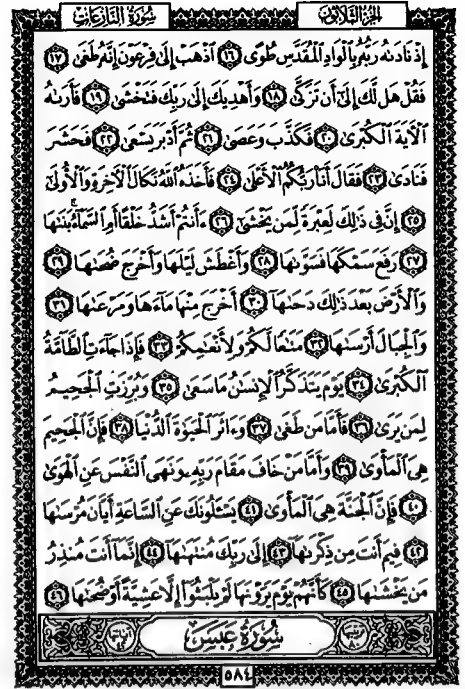 الجزء الثلاثون سورة النازعات
إِذْ نَادَىٰهُ رَبُّهُۥ بِٱلْوَادِ ٱلْمُقَدَّسِ طُوًى ١٦ ٱذْهَبْ إِلَىٰ فِرْعَوْنَ إِنَّهُۥ طَغَىٰ ١٧
فَقُلْ هَل لَّكَ إِلَىٰٓ أَن تَزَكَّىٰ ١٨ وَأَهْدِيَكَ إِلَىٰ رَبِّكَ فَتَخْشَىٰ ١٩ فَأَرَىٰهُ
ٱلْـَٔايَةَ ٱلْكُبْرَىٰ ٢٠ فَكَذَّبَ وَعَصَىٰ ٢١ ثُمَّ أَدْبَرَ يَسْعَىٰ ٢٢ فَحَشَرَ
فَنَادَىٰ ٢٣ فَقَالَ أَنَا۠ رَبُّكُمُ ٱلْأَعْلَىٰ ٢٤ فَأَخَذَهُ ٱللَّهُ نَكَالَ ٱلْـَٔاخِرَةِ وَٱلْأُولَىٰٓ
٢٥ إِنَّ فِى ذَٰلِكَ لَعِبْرَةً لِّمَن يَخْشَىٰٓ ٢٦ ءَأَنتُمْ أَشَدُّ خَلْقًا أَمِ ٱلسَّمَآءُ ۚ بَنَىٰهَا
٢٧ رَفَعَ سَمْكَهَا فَسَوَّىٰهَا ٢٨ وَأَغْطَشَ لَيْلَهَا وَأَخْرَجَ ضُحَىٰهَا ٢٩
وَٱلْأَرْضَ بَعْدَ ذَٰلِكَ دَحَىٰهَآ ٣٠ أَخْرَجَ مِنْهَا مَآءَهَا وَمَرْعَىٰهَا ٣١
وَٱلْجِبَالَ أَرْسَىٰهَا ٣٢ مَتَـٰعًا لَّكُمْ وَلِأَنْعَـٰمِكُمْ ٣٣ فَإِذَا جَآءَتِ ٱلطَّآمَّةُ
ٱلْكُبْرَىٰ ٣٤ يَوْمَ يَتَذَكَّرُ ٱلْإِنسَـٰنُ مَا سَعَىٰ ٣٥ وَبُرِّزَتِ ٱلْجَحِيمُ
لِمَن يَرَىٰ ٣٦ فَأَمَّا مَن طَغَىٰ ٣٧ وَءَاثَرَ ٱلْحَيَوٰةَ ٱلدُّنْيَا ٣٨ فَإِنَّ ٱلْجَحِيمَ
هِىَ ٱلْمَأْوَىٰ ٣٩ وَأَمَّا مَنْ خَافَ مَقَامَ رَبِّهِۦ وَنَهَى ٱلنَّفْسَ عَنِ ٱلْهَوَىٰ
٤٠ فَإِنَّ ٱلْجَنَّةَ هِىَ ٱلْمَأْوَىٰ ٤١ يَسْـَٔلُونَكَ عَنِ ٱلسَّاعَةِ أَيَّانَ مُرْسَىٰهَا
٤٢ فِيمَ أَنتَ مِن ذِكْرَىٰهَآ ٤٣ إِلَىٰ رَبِّكَ مُنتَهَىٰهَآ ٤٤ إِنَّمَآ أَنتَ مُنذِرُ
مَن يَخْشَىٰهَا ٤٥ كَأَنَّهُمْ يَوْمَ يَرَوْنَهَا لَمْ يَلْبَثُوٓا۟ إِلَّا عَشِيَّةً أَوْ ضُحَىٰهَا ٤٦
سُورَةُ عَبَسَ
٥٨٤